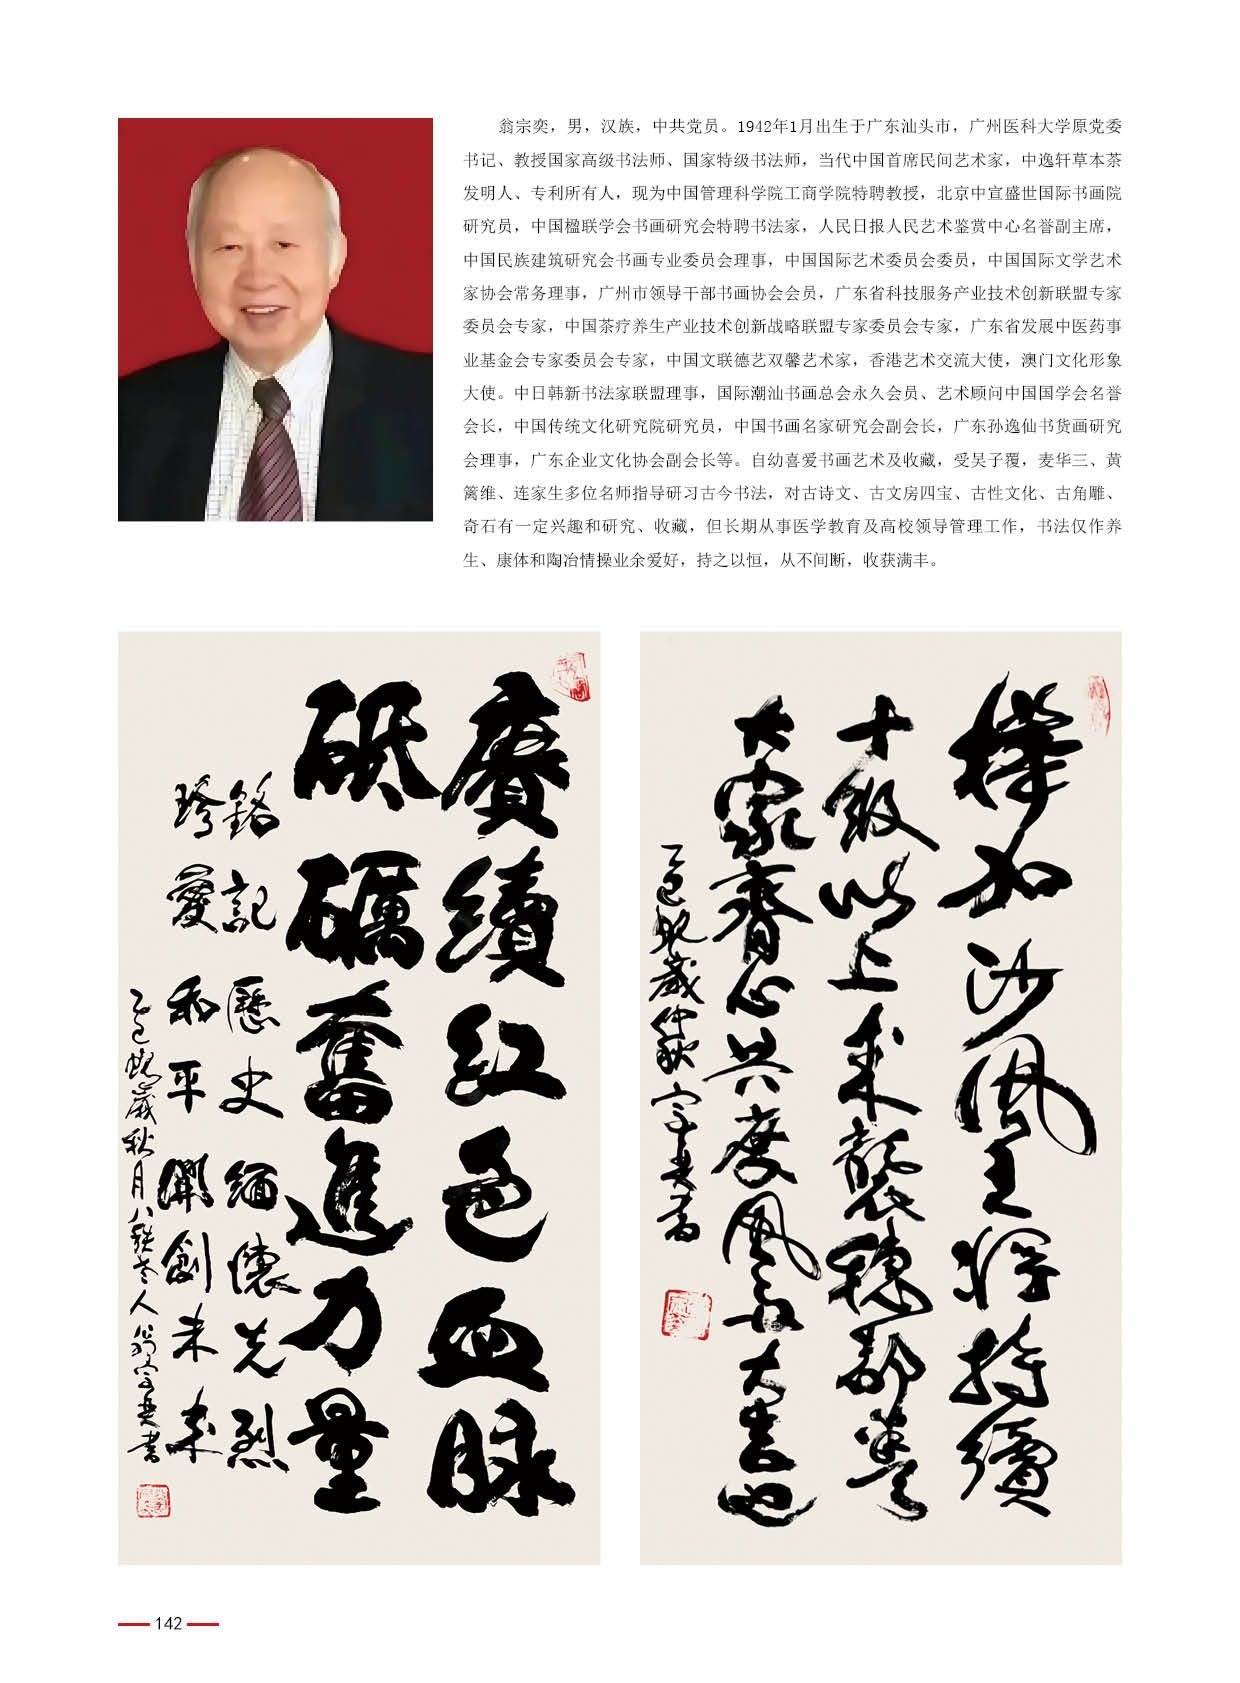 翁宗奕，男，汉族，中共党员。1942年1月出生于广东汕头市，广州医科大学原党委
书记、教授国家高级书法师、国家特级书法师，当代中国首席民间艺术家，中逸轩草本茶
发明人、专利所有人，现为中国管理科学院工商学院特聘教授，北京中宣盛世国际书画院
研究员，中国楹联学会书画研究会特聘书法家，人民日报人民艺术鉴赏中心名誉副主席，
中国民族建筑研究会书画专业委员会理事，中国国际艺术委员会委员，中国国际文学艺术
家协会常务理事，广州市领导干部书画协会会员，广东省科技服务产业技术创新联盟专家
委员会专家，中国茶疗养生产业技术创新战略联盟专家委员会专家，广东省发展中医药事
业基金会专家委员会专家，中国文联德艺双馨艺术家，香港艺术交流大使，澳门文化形象
大使。中日韩新书法家联盟理事，国际潮汕书画总会永久会员、艺术顾问中国国学会名誉
会长，中国传统文化研究院研究员，中国书画名家研究会副会长，广东孙逸仙书货画研究
会理事，广东企业文化协会副会长等。自幼喜爱书画艺术及收藏，受吴子覆，麦华三、黄
篱维、连家生多位名师指导研习古今书法，对古诗文、古文房四宝、古性文化、古角雕、
奇石有一定兴趣和研究、收藏，但长期从事医学教育及高校领导管理工作，书法仅作养
生、康体和陶冶情操业余爱好，持之以恒，从不间断，收获满丰。
賡續紅色血脉
砥礪奮進力量
銘記歷史緬懷先烈
珍愛和平開創未来
乙巳蛇嵗秋月八秩老人翁宗奕書
樺加沙風王将持續
十級以上来襲穗都羊
大家齊心共度風雨大吉也
乙巳蛇嵗仲秋宗奕書
142